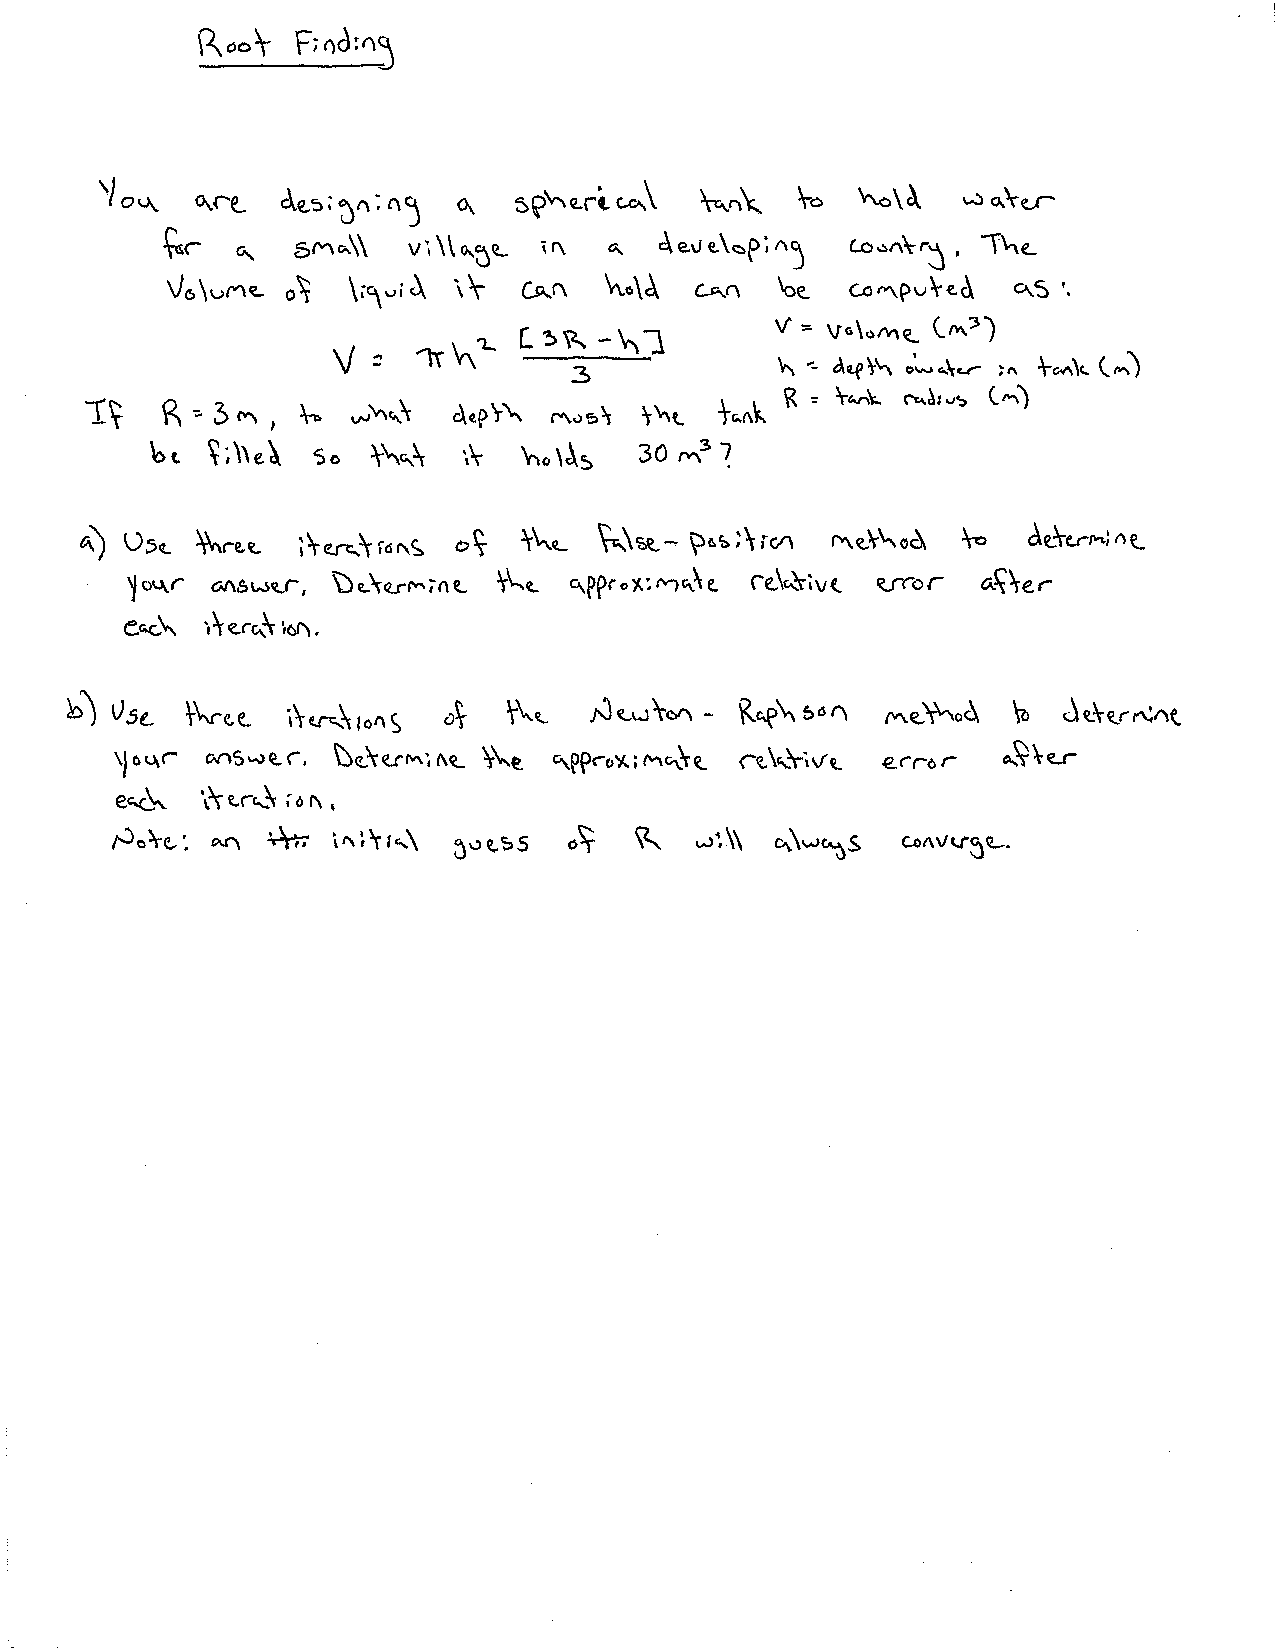 Root Finding
You are designing a spherical tank to hold water
for a small village in a developing country. The
Volume of liquid it can hold can be computed as:
V = πh² [3R-h]/3
V = volume (m³)
h = depth of water in tank (m)
R = tank radius (m)
If R = 3m, to what depth must the tank
be filled so that it holds 30 m³?
a) Use three iterations of the false-position method to determine
your answer. Determine the approximate relative error after
each iteration.
b) Use three iterations of the Newton-Raphson method to determine
your answer. Determine the approximate relative error after
each iteration.
Note: an initial guess of R will always converge.